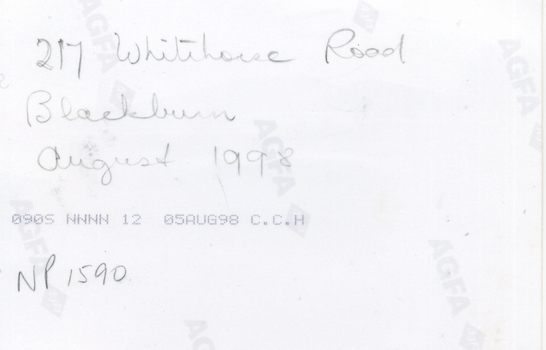 217 Whitehorse Road
Blackburn
August 1998
090S NNNN 12 05AUG98 C.C.H
NP1590
AGFA
AGFA
AGFA
AGFA
AGFA
AGFA